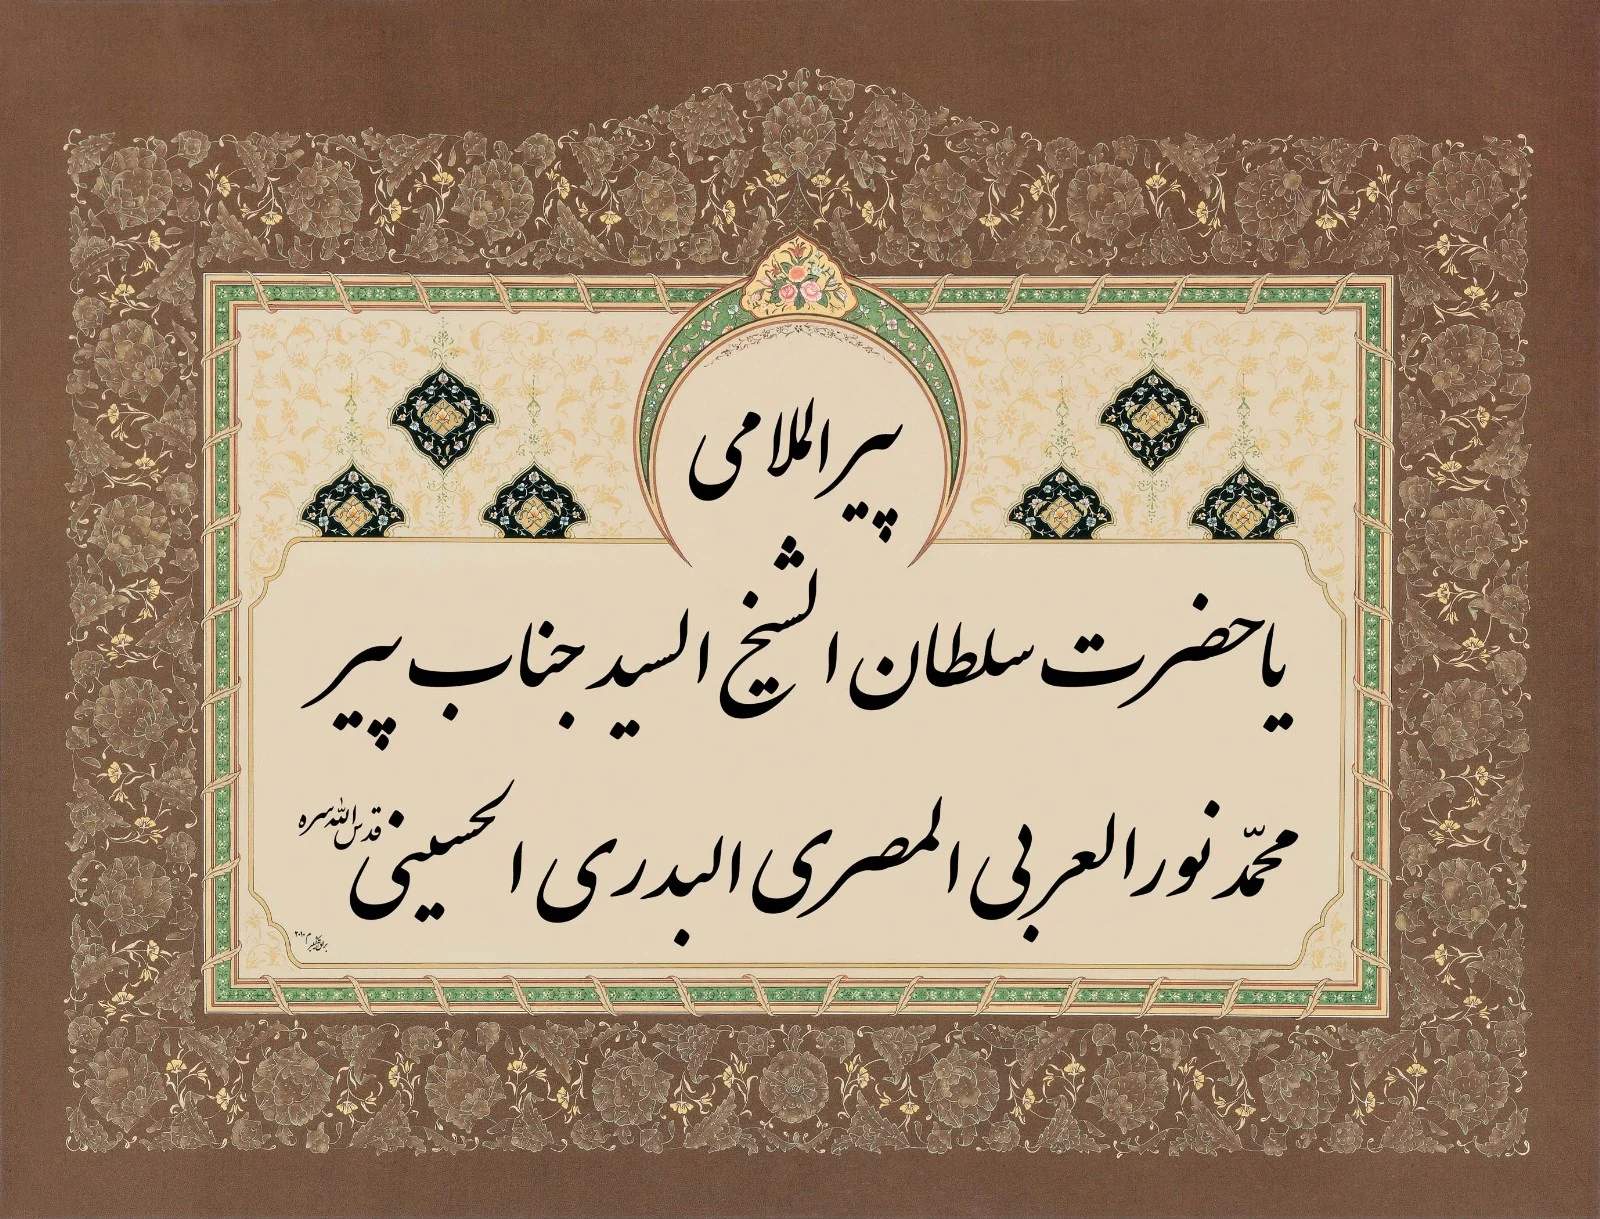 پير الملامی
يا حضرت سلطان الشيخ السيد جناب پير
محمّد نور العربی المصری البدری الحسينی
قدس الله سره
٢٠١٠ م